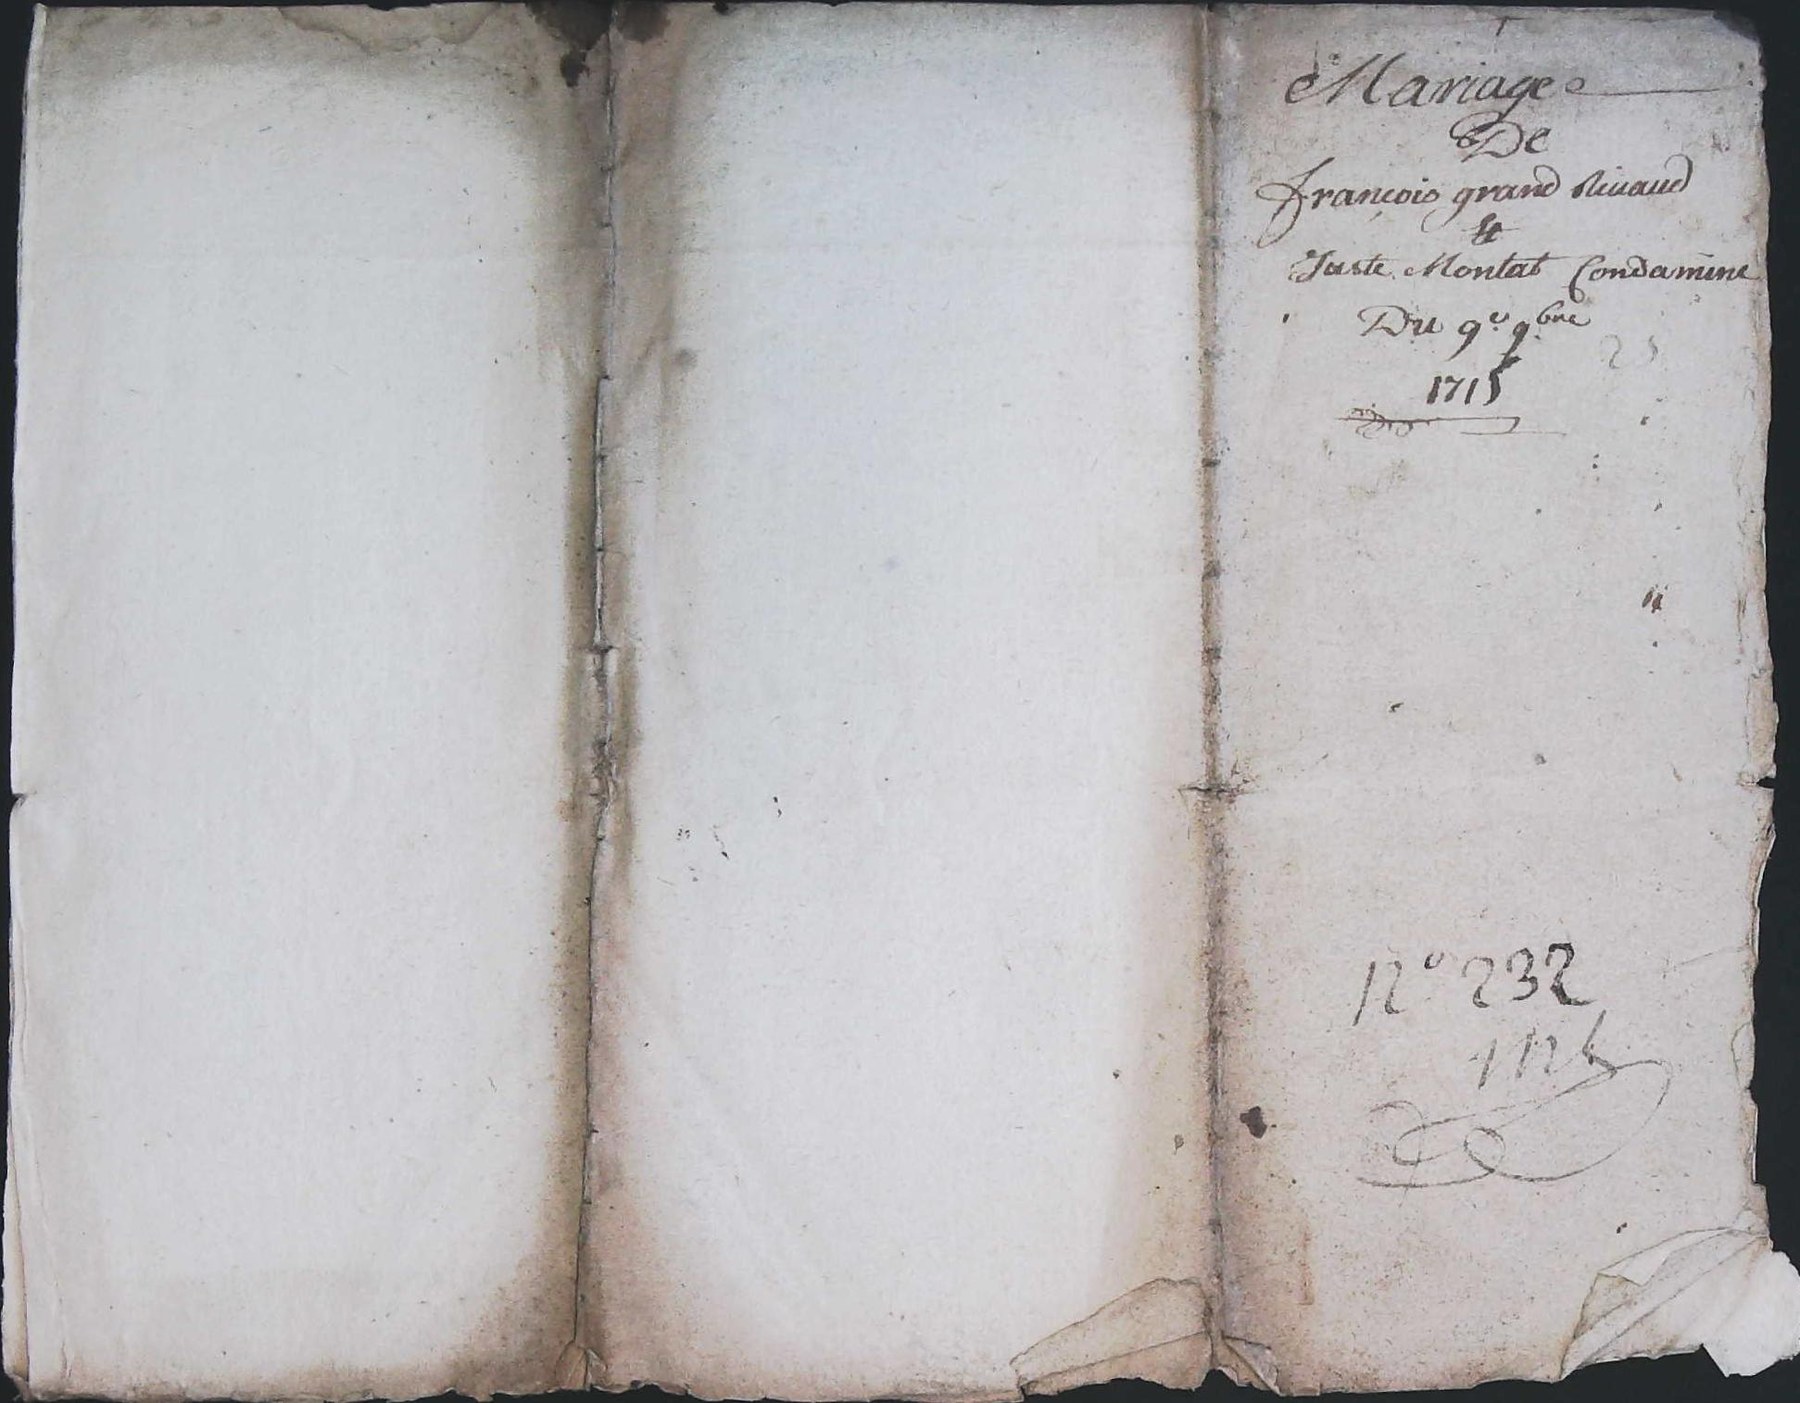 Mariage
De
françois grand Rivaud
Et
Juste Montat Condamine
Du 9e 9bre
1715
25
N° 232